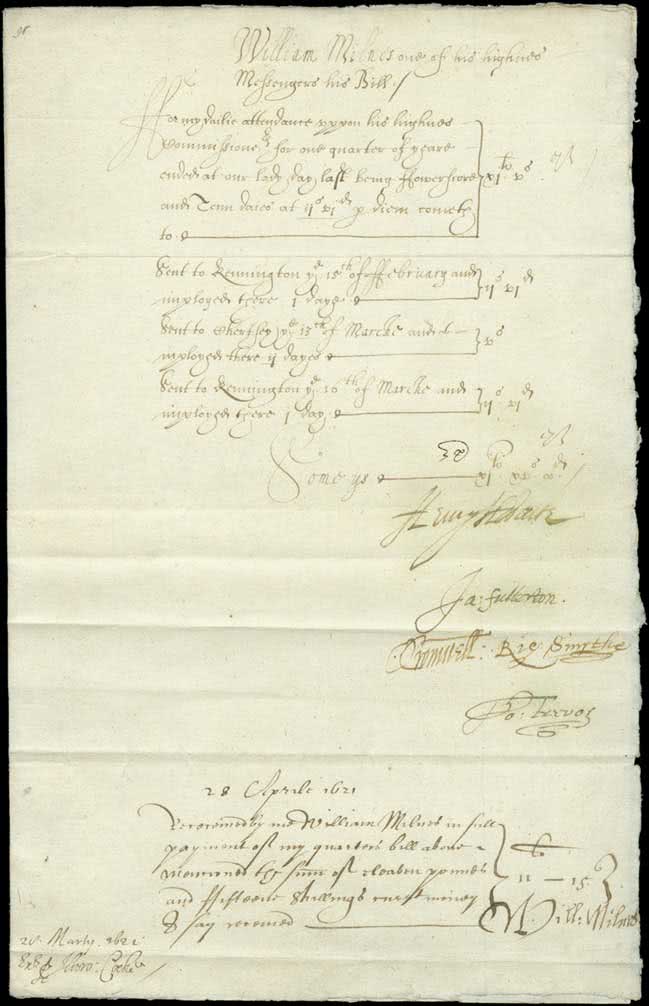 William Milnes one of his highnes
Messengers his Bill /
For my dailie attendance uppon his highnes
Commissioners for one quarter of yeare
ended at our lady day last being ffowerscore
and Tenn daies at ijs vjd p diem cometh
to
xjli vs
Sent to Kennington ye 15th of ffebruary and
imployed there 1 daye
ijs vjd
Sent to Chertsey ye 13th of Marche and
imployed there ij dayes
vs
Sent to Kennington ye 16th of Marche and
imployed there 1 day
ijs vjd
Some ys
xjli xvs
Ja: fullerton.
Cromwell: Ric Smythe
Jo: Trevor
28 Aprile 1621
Receaved by me William Milnes in full
payment of my quarters bill above
mencioned the sum of eleaven poundes
and ffifteene shillings currt money
I say receaved
li
11 — 15
Will: Milnes
Marty. 1621